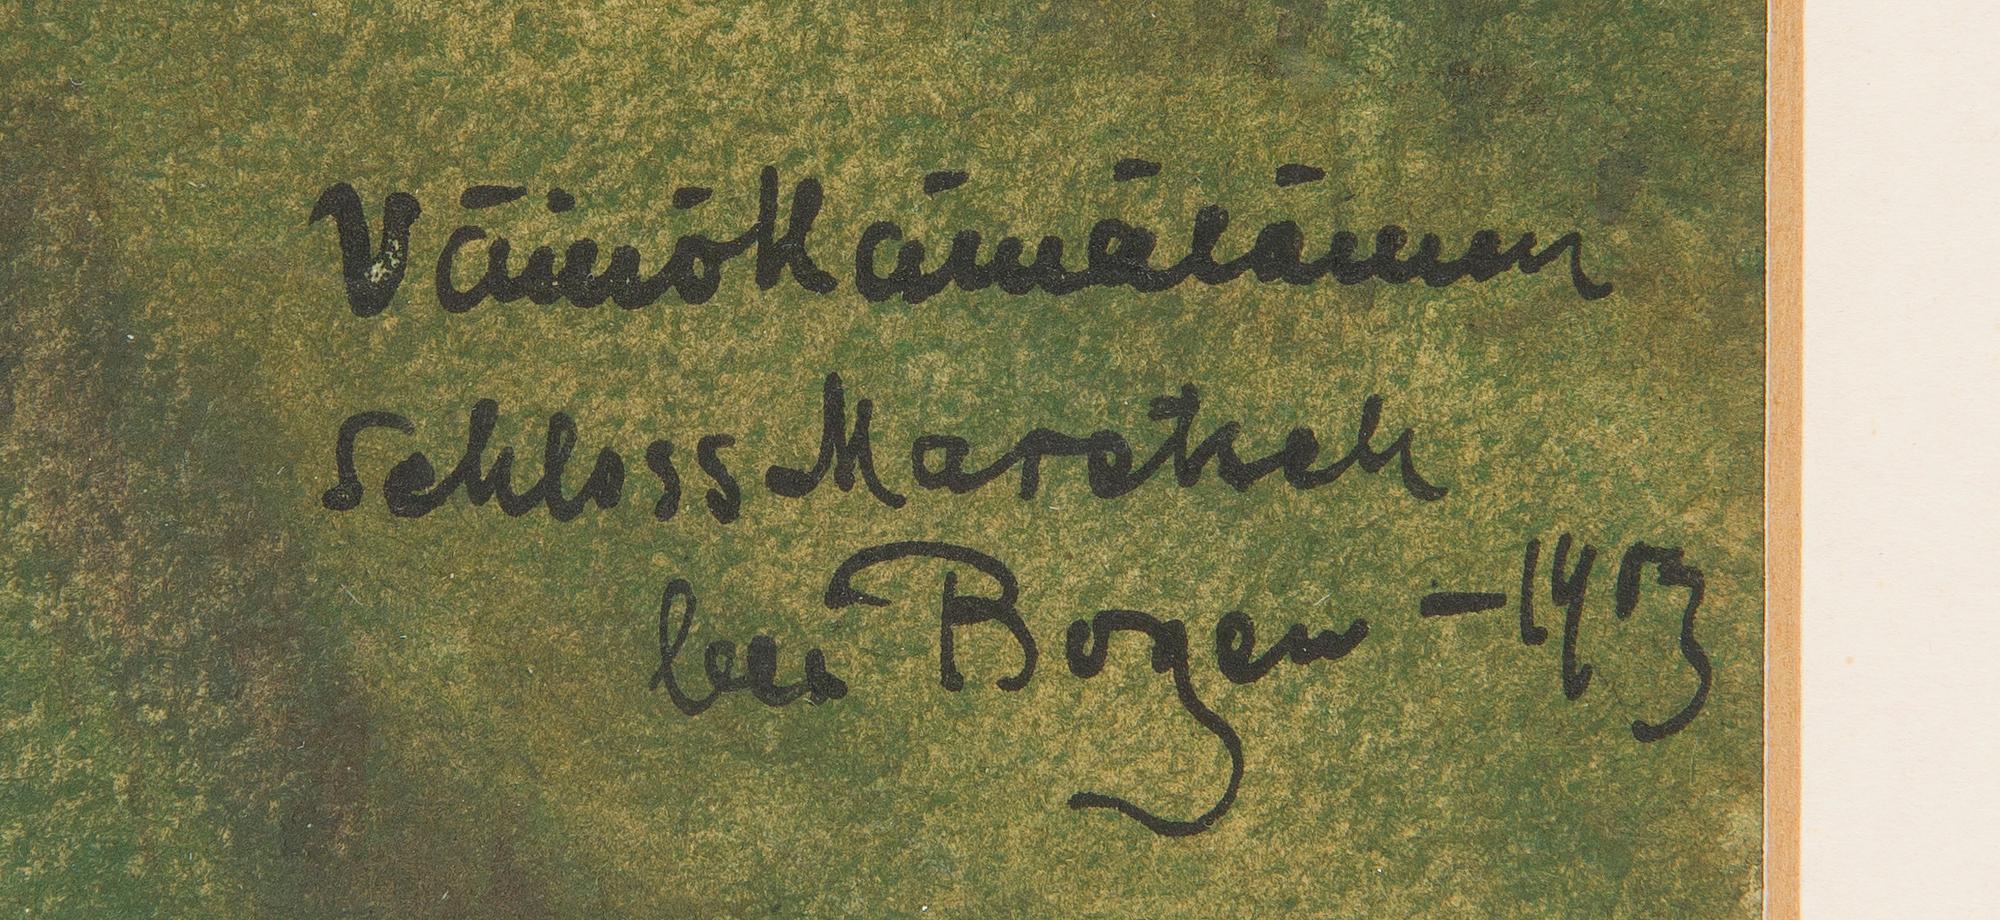 Väinö Hämäläinen
Schloss Maretsch
bei Bozen - 1903